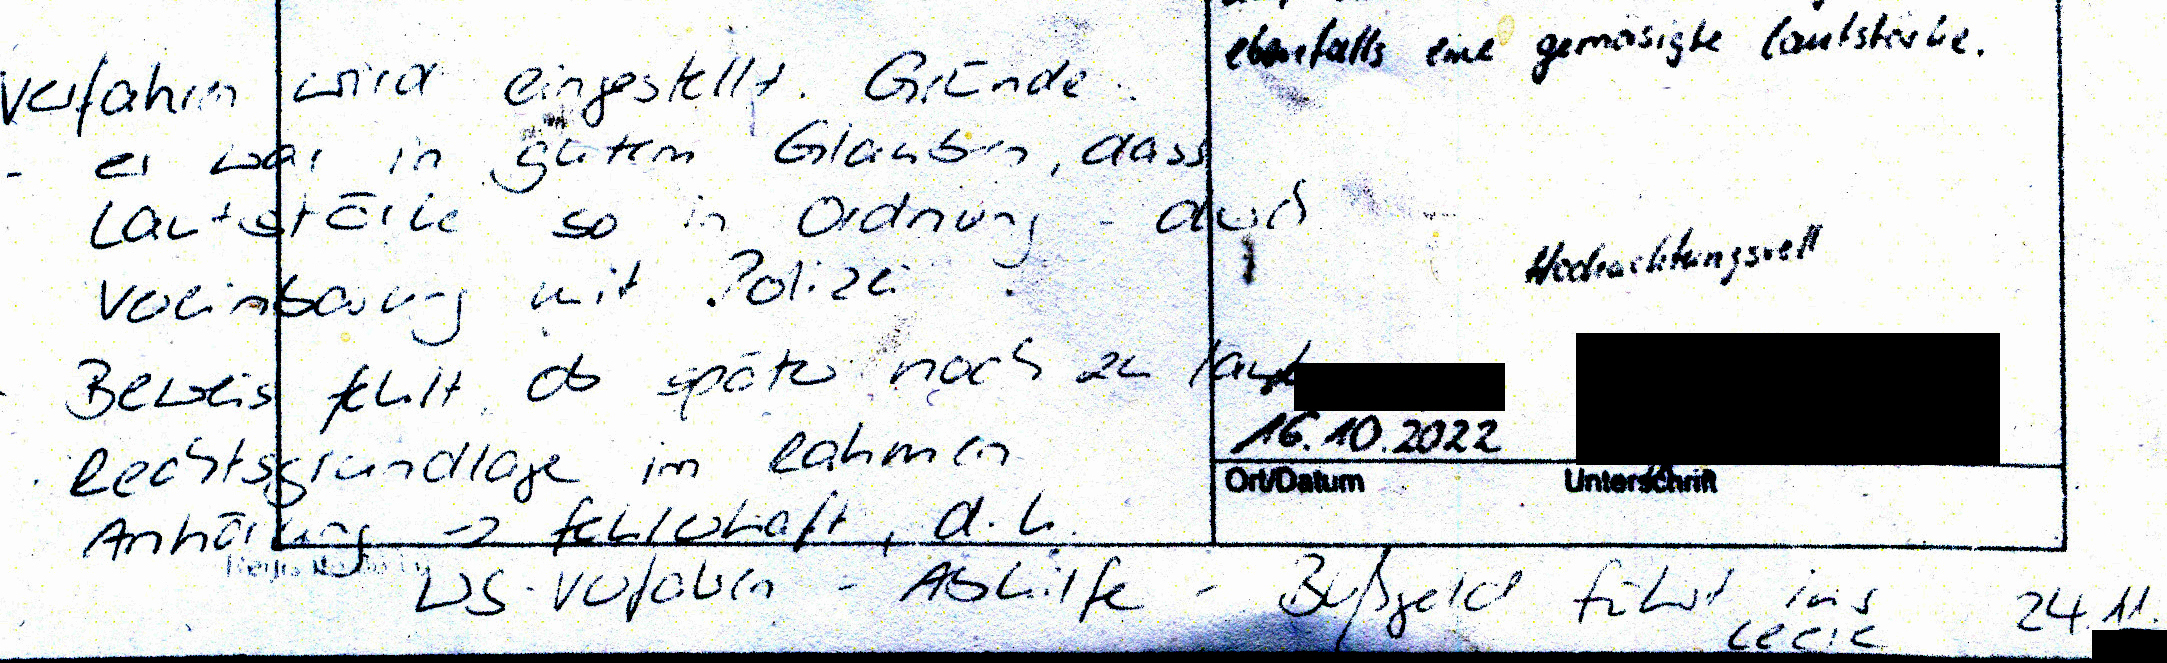 ebenfalls eine gemäsigte Lautstärke.
Hochachtungsvoll
16.10.2022
Ort/Datum Unterschrift
Verfahren wird eingestellt. Gründe:
- er war in gutem Glauben, dass
Lautstärke so in Ordnung - durch
Vereinbarung mit Polizei
- Beweis fehlt, ob später noch zu laut
- Rechtsgrundlage im Rahmen
Anhörung → fehlerhaft, d.h.
WS-Verfahren - Abhilfe - Bußgeld führt ins
Leere 24.11.